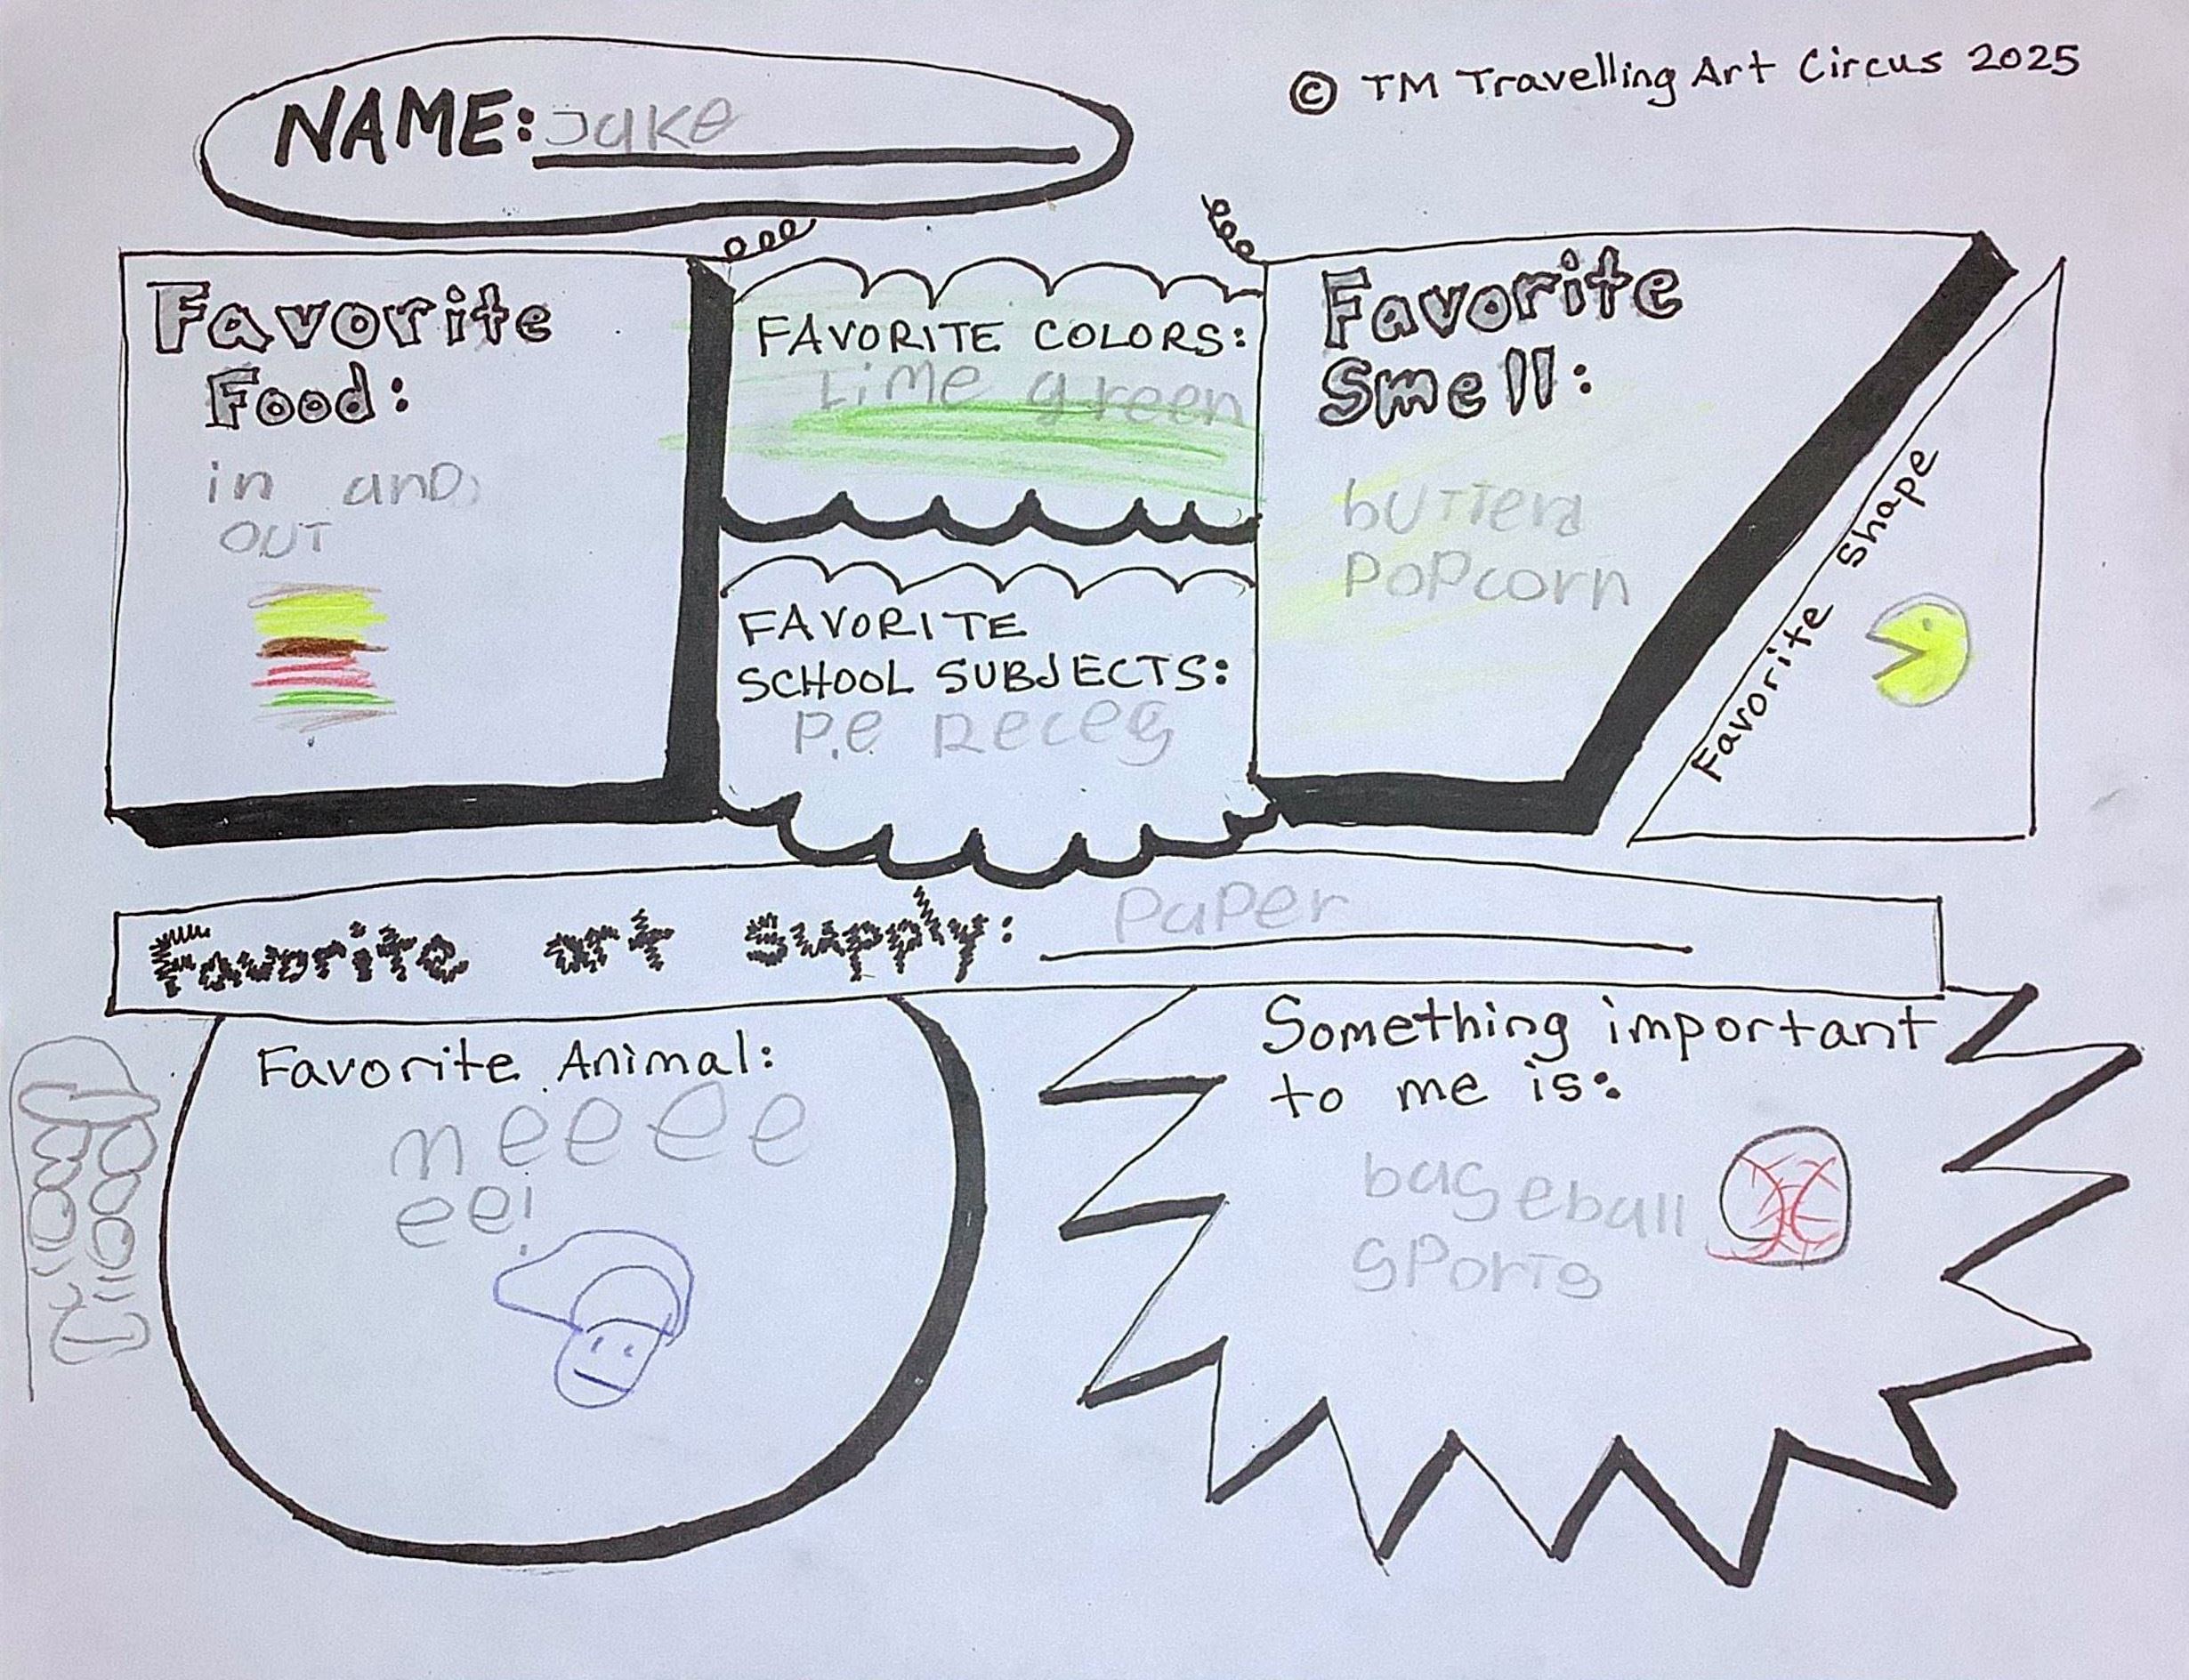 © TM Travelling Art Circus 2025
NAME: Jake
Favorite
Food:
in and
OUT
FAVORITE COLORS:
Lime green
FAVORITE
SCHOOL SUBJECTS:
P.e Reces
Favorite
Smell:
bUTTerd
PoPcorn
Favorite Shape
Favorite art Supply: PaPer
Favorite Animal:
meeee
ee!
Something important
to me is:
baseball
sPorTs